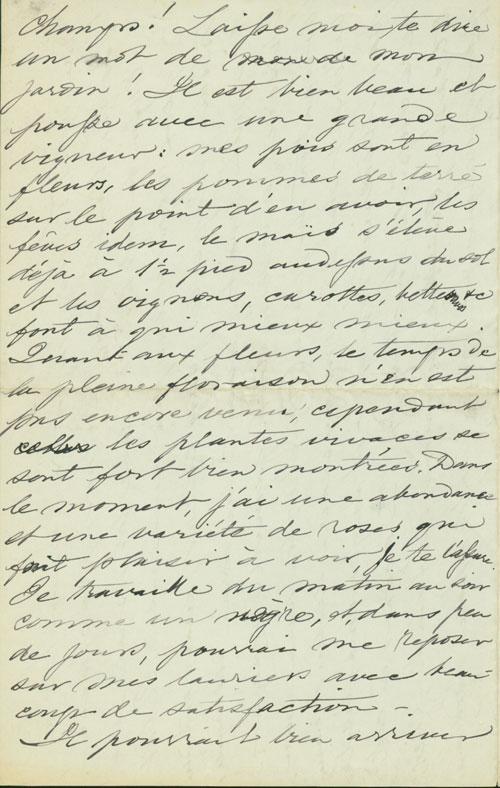 champs! Laisse moi te dire
un mot de mon
jardin! Il est bien beau et
pousse avec une grande
vigueur: mes pois sont en
fleurs, les pommes de terre
sur le point d'en avoir, les
fèves idem, le maïs s'élève
déjà à 1½ pied audessus du sol
et les oignons, carottes, betteraves &c
font à qui mieux mieux.
Quant aux fleurs, le temps de
la pleine floraison n'en est
pas encore venu, cependant
les plantes vivaces se
sont fort bien montrées. Dans
le moment, j'ai une abondance
et une variété de roses qui
fait plaisir à voir, je te l'assure.
Je travaille du matin au soir
comme un nègre, et, dans peu
de jours, pourrai me reposer
sur mes lauriers avec beau-
coup de satisfaction -.
Il pourrait bien arriver